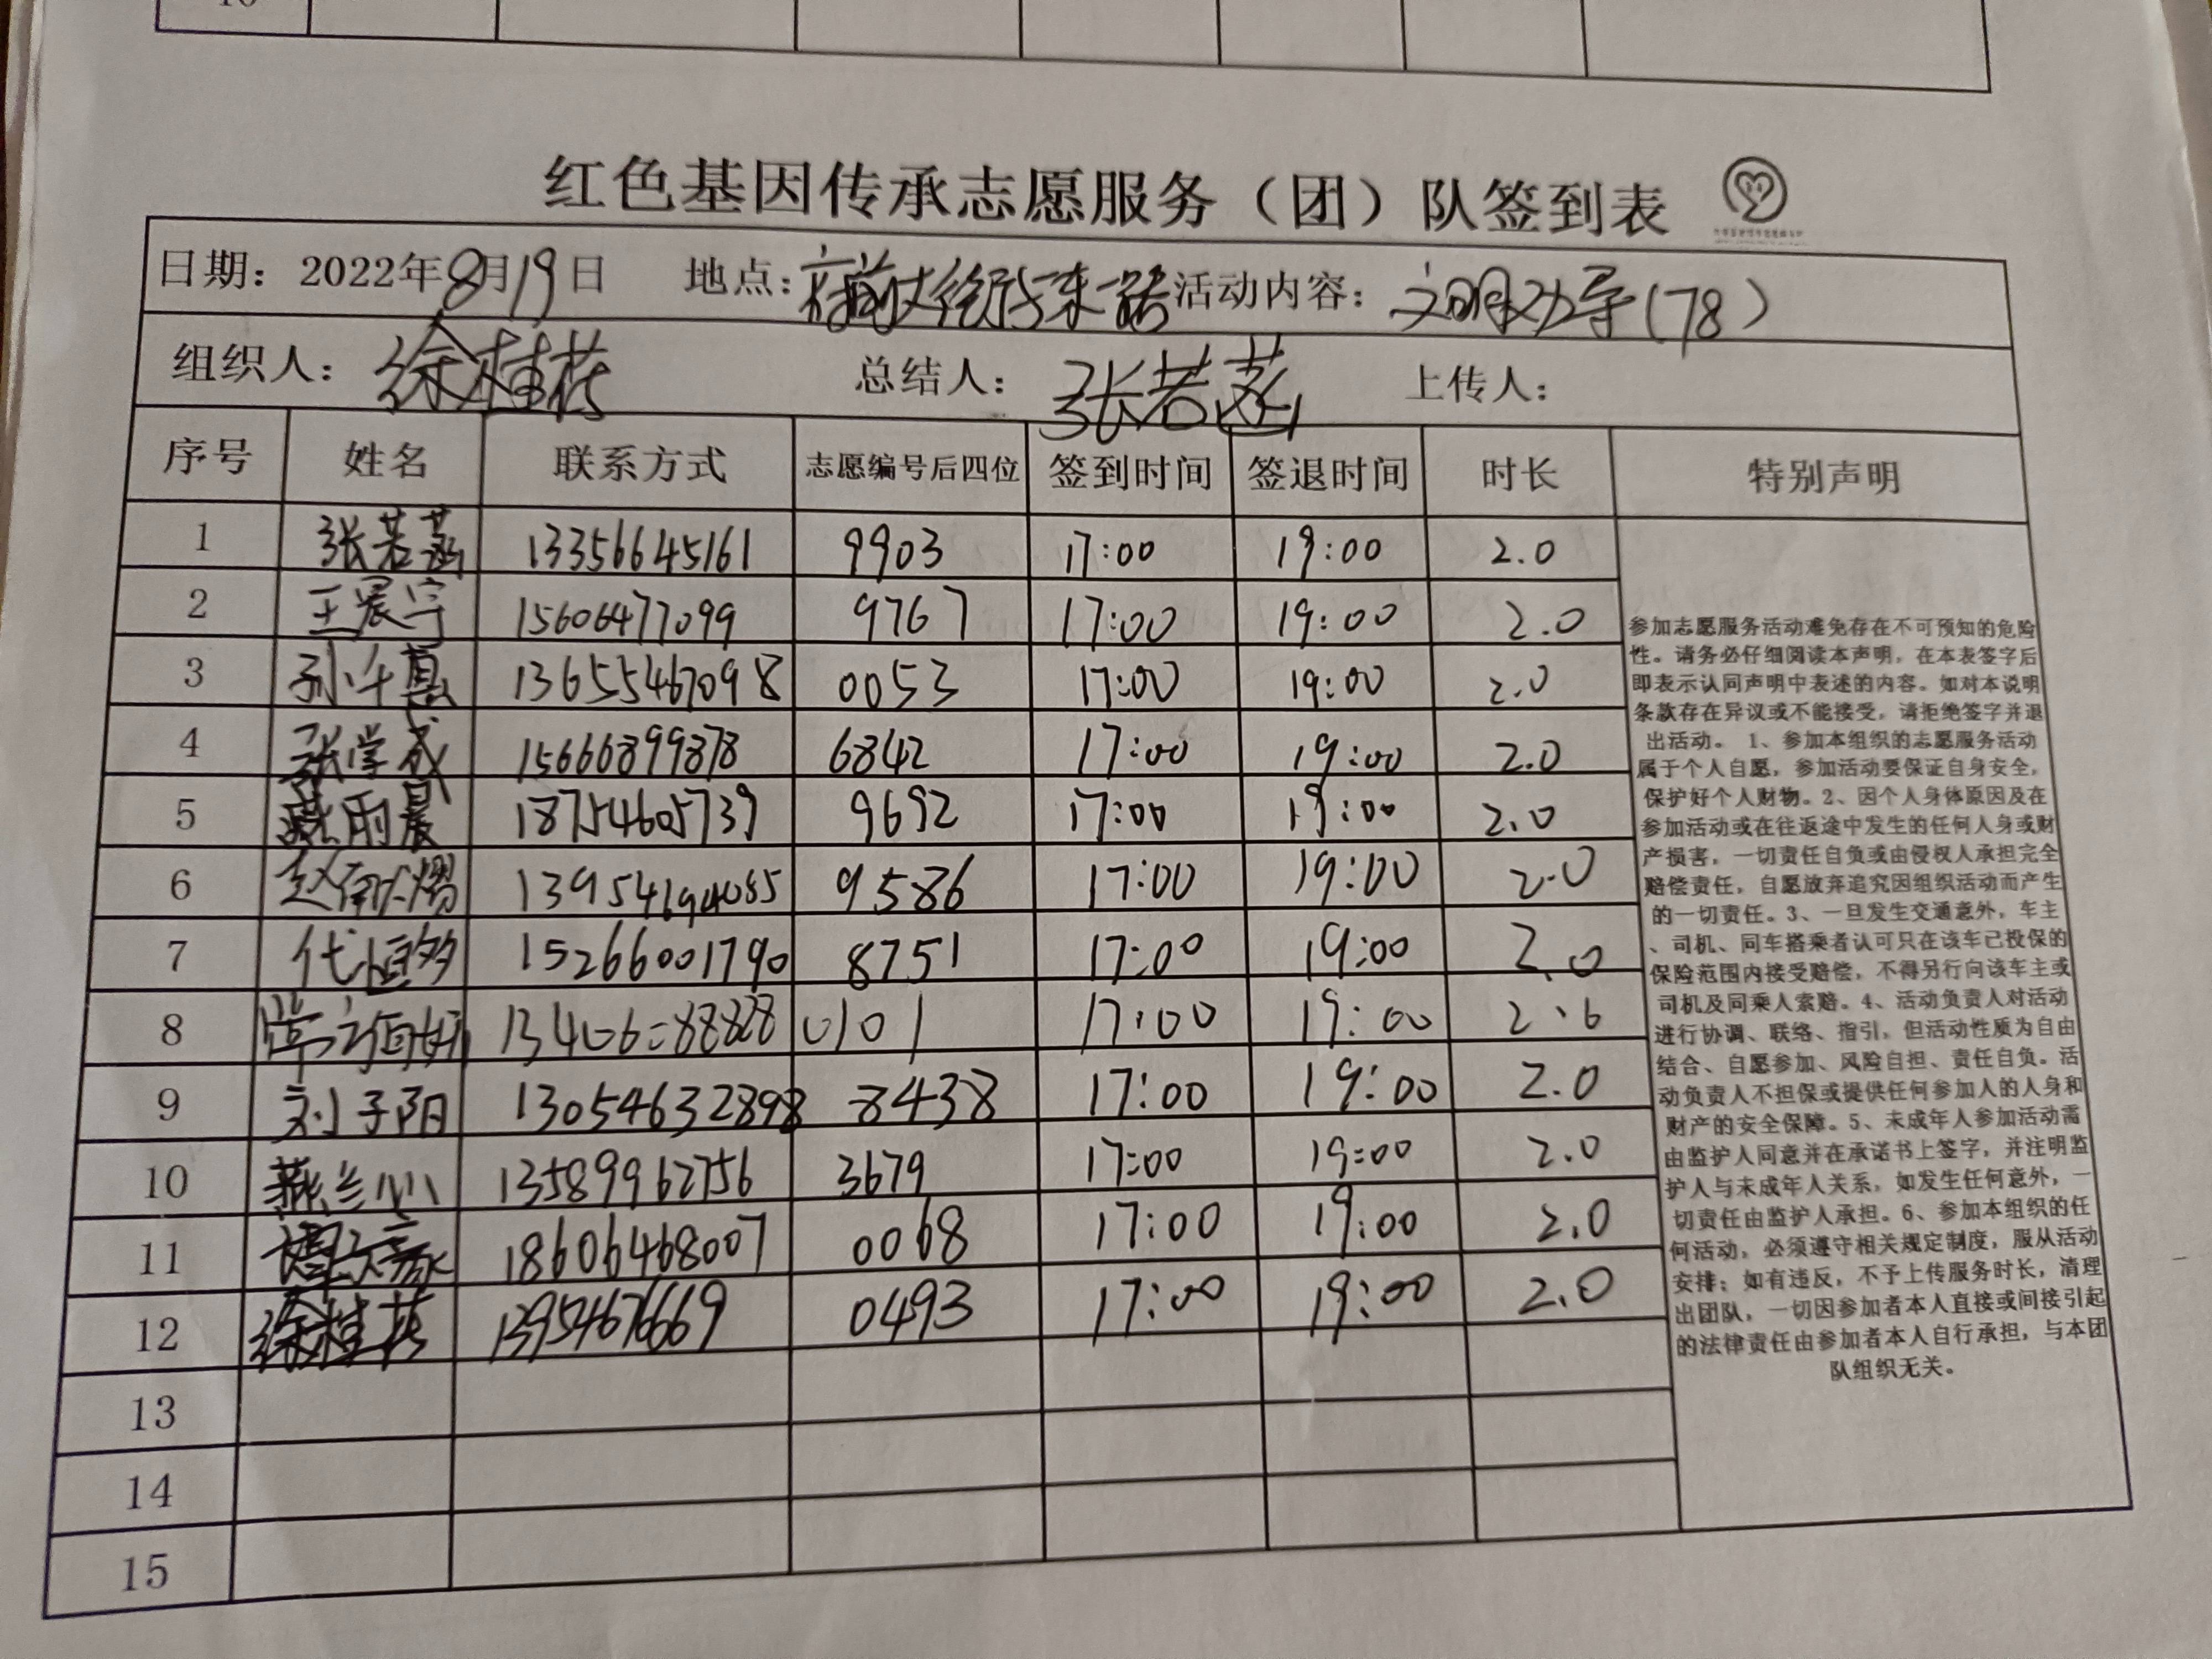 10
红色基因传承志愿服务（团）队签到表
日期：2022年8月19日 地点：府前大街与东一路 活动内容：文明劝导（78）
组织人：徐桂荗 总结人：张若菡 上传人：
序号 姓名 联系方式 志愿编号后四位 签到时间 签退时间 时长 特别声明
1 张若菡 13356645161 9903 17:00 19:00 2.0
2 王晨宇 15606477099 9767 17:00 19:00 2.0
3 孙千惠 13655467098 0053 17:00 19:00 2.0
4 张学成 15666899878 6842 17:00 19:00 2.0
5 雨晨 18754605739 9692 17:00 19:00 2.0
6 赵 13954694085 9586 17:00 19:00 2.0
7 代恒多 15266001790 8751 17:00 19:00 2.0
8 0101 17:00 19:00 2.0
9 刘子阳 13054632898 8438 17:00 19:00 2.0
10 13589962756 3679 17:00 19:00 2.0
11 18606468007 0068 17:00 19:00 2.0
12 徐桂 13954676669 0493 17:00 19:00 2.0
13
14
15
参加志愿服务活动难免存在不可预知的危险
性。请务必仔细阅读本声明，在本表签字后
即表示认同声明中表述的内容。如对本说明
条款存在异议或不能接受，请拒绝签字并退
出活动。 1、参加本组织的志愿服务活动
属于个人自愿，参加活动要保证自身安全，
保护好个人财物。2、因个人身体原因及在
参加活动或在往返途中发生的任何人身或财
产损害，一切责任自负或由侵权人承担完全
赔偿责任，自愿放弃追究因组织活动而产生
的一切责任。3、一旦发生交通意外，车主
、司机、同车搭乘者认可只在该车已投保的
保险范围内接受赔偿，不得另行向该车主或
司机及同乘人索赔。4、活动负责人对活动
进行协调、联络、指引，但活动性质为自由
结合、自愿参加、风险自担、责任自负。活
动负责人不担保或提供任何参加人的人身和
财产的安全保障。5、未成年人参加活动需
由监护人同意并在承诺书上签字，并注明监
护人与未成年人关系，如发生任何意外，一
切责任由监护人承担。6、参加本组织的任
何活动，必须遵守相关规定制度，服从活动
安排；如有违反，不予上传服务时长，清理
出团队，一切因参加者本人直接或间接引起
的法律责任由参加者本人自行承担，与本团
队组织无关。